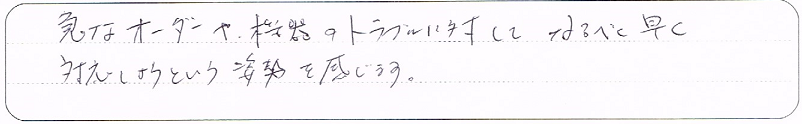 急なオーダーや、機器のトラブルに対して なるべく早く
対応しようという姿勢を感じます。